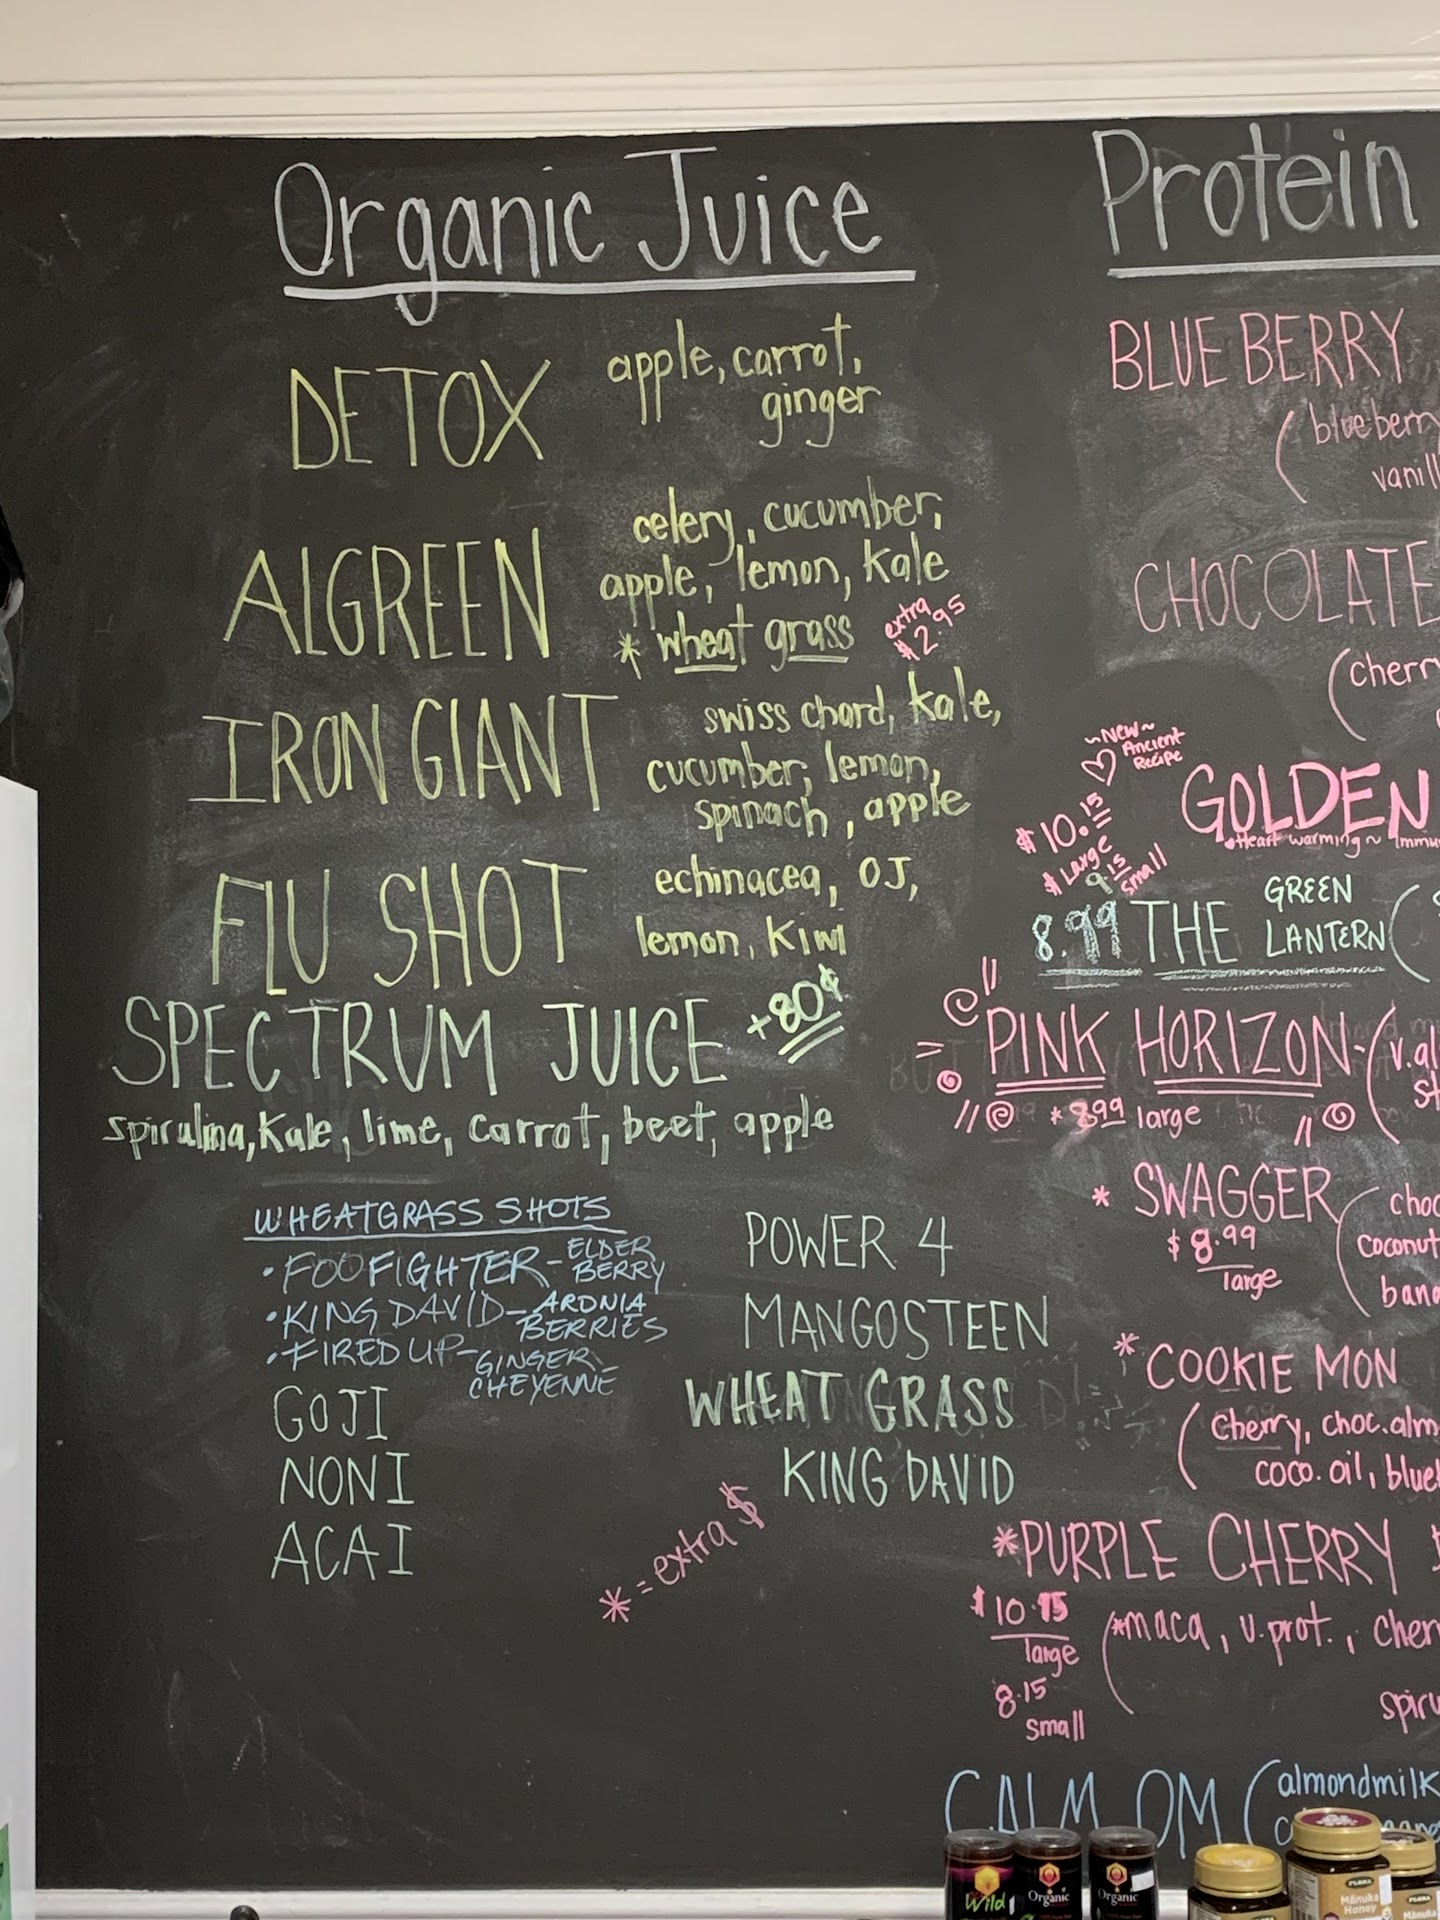 Organic Juice
DETOX
apple, carrot,
ginger
ALGREEN
celery, cucumber,
apple, lemon, kale
* wheat grass
extra
$2.95
IRON GIANT
swiss chard, kale,
cucumber, lemon,
spinach, apple
FLU SHOT
echinacea, OJ,
lemon, kiwi
SPECTRUM JUICE +80¢
spirulina, kale, lime, carrot, beet, apple
WHEATGRASS SHOTS
• FOOFIGHTER - ELDER
BERRY
• KING DAVID - ARONIA
BERRIES
• FIRED UP - GINGER -
CHEYENNE
GOJI
NONI
ACAI
POWER 4
MANGOSTEEN
WHEAT GRASS
KING DAVID
* = extra $
Protein
BLUEBERRY
(blueberry
vanill
CHOCOLATE
(cherry
~New~
Ancient
Recipe
$10.15
Large
$9.15
small
GOLDEN
Heart warming ~ Immu
8.99 THE GREEN
LANTERN (
= PINK HORIZON - (v.al
st
* 8.99 large
* SWAGGER (choc
$8.99
large
coconut
bana
* COOKIE MON
(cherry, choc. alm
coco. oil, blue
*PURPLE CHERRY
$10.15
large
8.15
small
(*maca, v. prot., cher
spiru
CALM OM (almondmilk
Wild
Organic
Organic
FLORA
Manuka
Honey
FLORA
Manuka